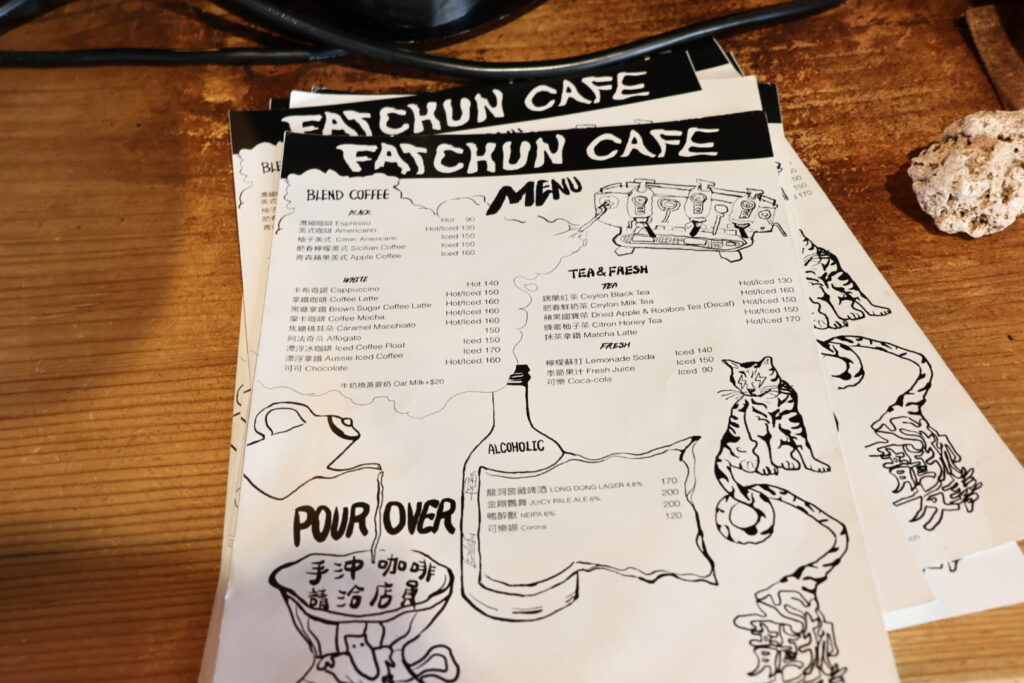 FATCHUN CAFE
FATCHUN CAFE
MENU
BLEND COFFEE
BLACK
濃縮咖啡 Espresso Hot 90
美式咖啡 Americano Hot/Iced 130
柚子美式 Citron Americano Iced 150
肥春檸檬美式 Sicilian Coffee Iced 150
青森蘋果美式 Apple Coffee Iced 160
WHITE
卡布奇諾 Cappuccino Hot 140
拿鐵咖啡 Coffee Latte Hot/Iced 150
黑糖拿鐵 Brown Sugar Coffee Latte Hot/Iced 160
摩卡咖啡 Coffee Mocha Hot/Iced 160
焦糖瑪其朵 Caramel Macchiato Hot/Iced 160
阿法奇朵 Affogato 150
漂浮冰咖啡 Iced Coffee Float Iced 150
漂浮拿鐵 Aussie Iced Coffee Iced 170
可可 Chocolate Hot/Iced 160
牛奶換燕麥奶 Oat Milk+$20
TEA & FRESH
TEA
錫蘭紅茶 Ceylon Black Tea Hot/Iced 130
肥春鮮奶茶 Ceylon Milk Tea Hot/Iced 160
蘋果國寶茶 Dried Apple & Rooibos Tea (Decaf) Hot/Iced 160
蜂蜜柚子茶 Citron Honey Tea Hot/Iced 150
抹茶拿鐵 Matcha Latte Hot/Iced 170
FRESH
檸檬蘇打 Lemonade Soda Iced 140
季節果汁 Fresh Juice Iced 150
可樂 Coca-cola Iced 90
ALCOHOLIC
龍洞窖藏啤酒 LONG DONG LAGER 4.8% 170
金剛鸚舞 JUICY PALE ALE 6% 200
鴨醉獸 NEIPA 6% 200
可樂娜 Corona 120
POUR OVER
手沖咖啡
請洽店員